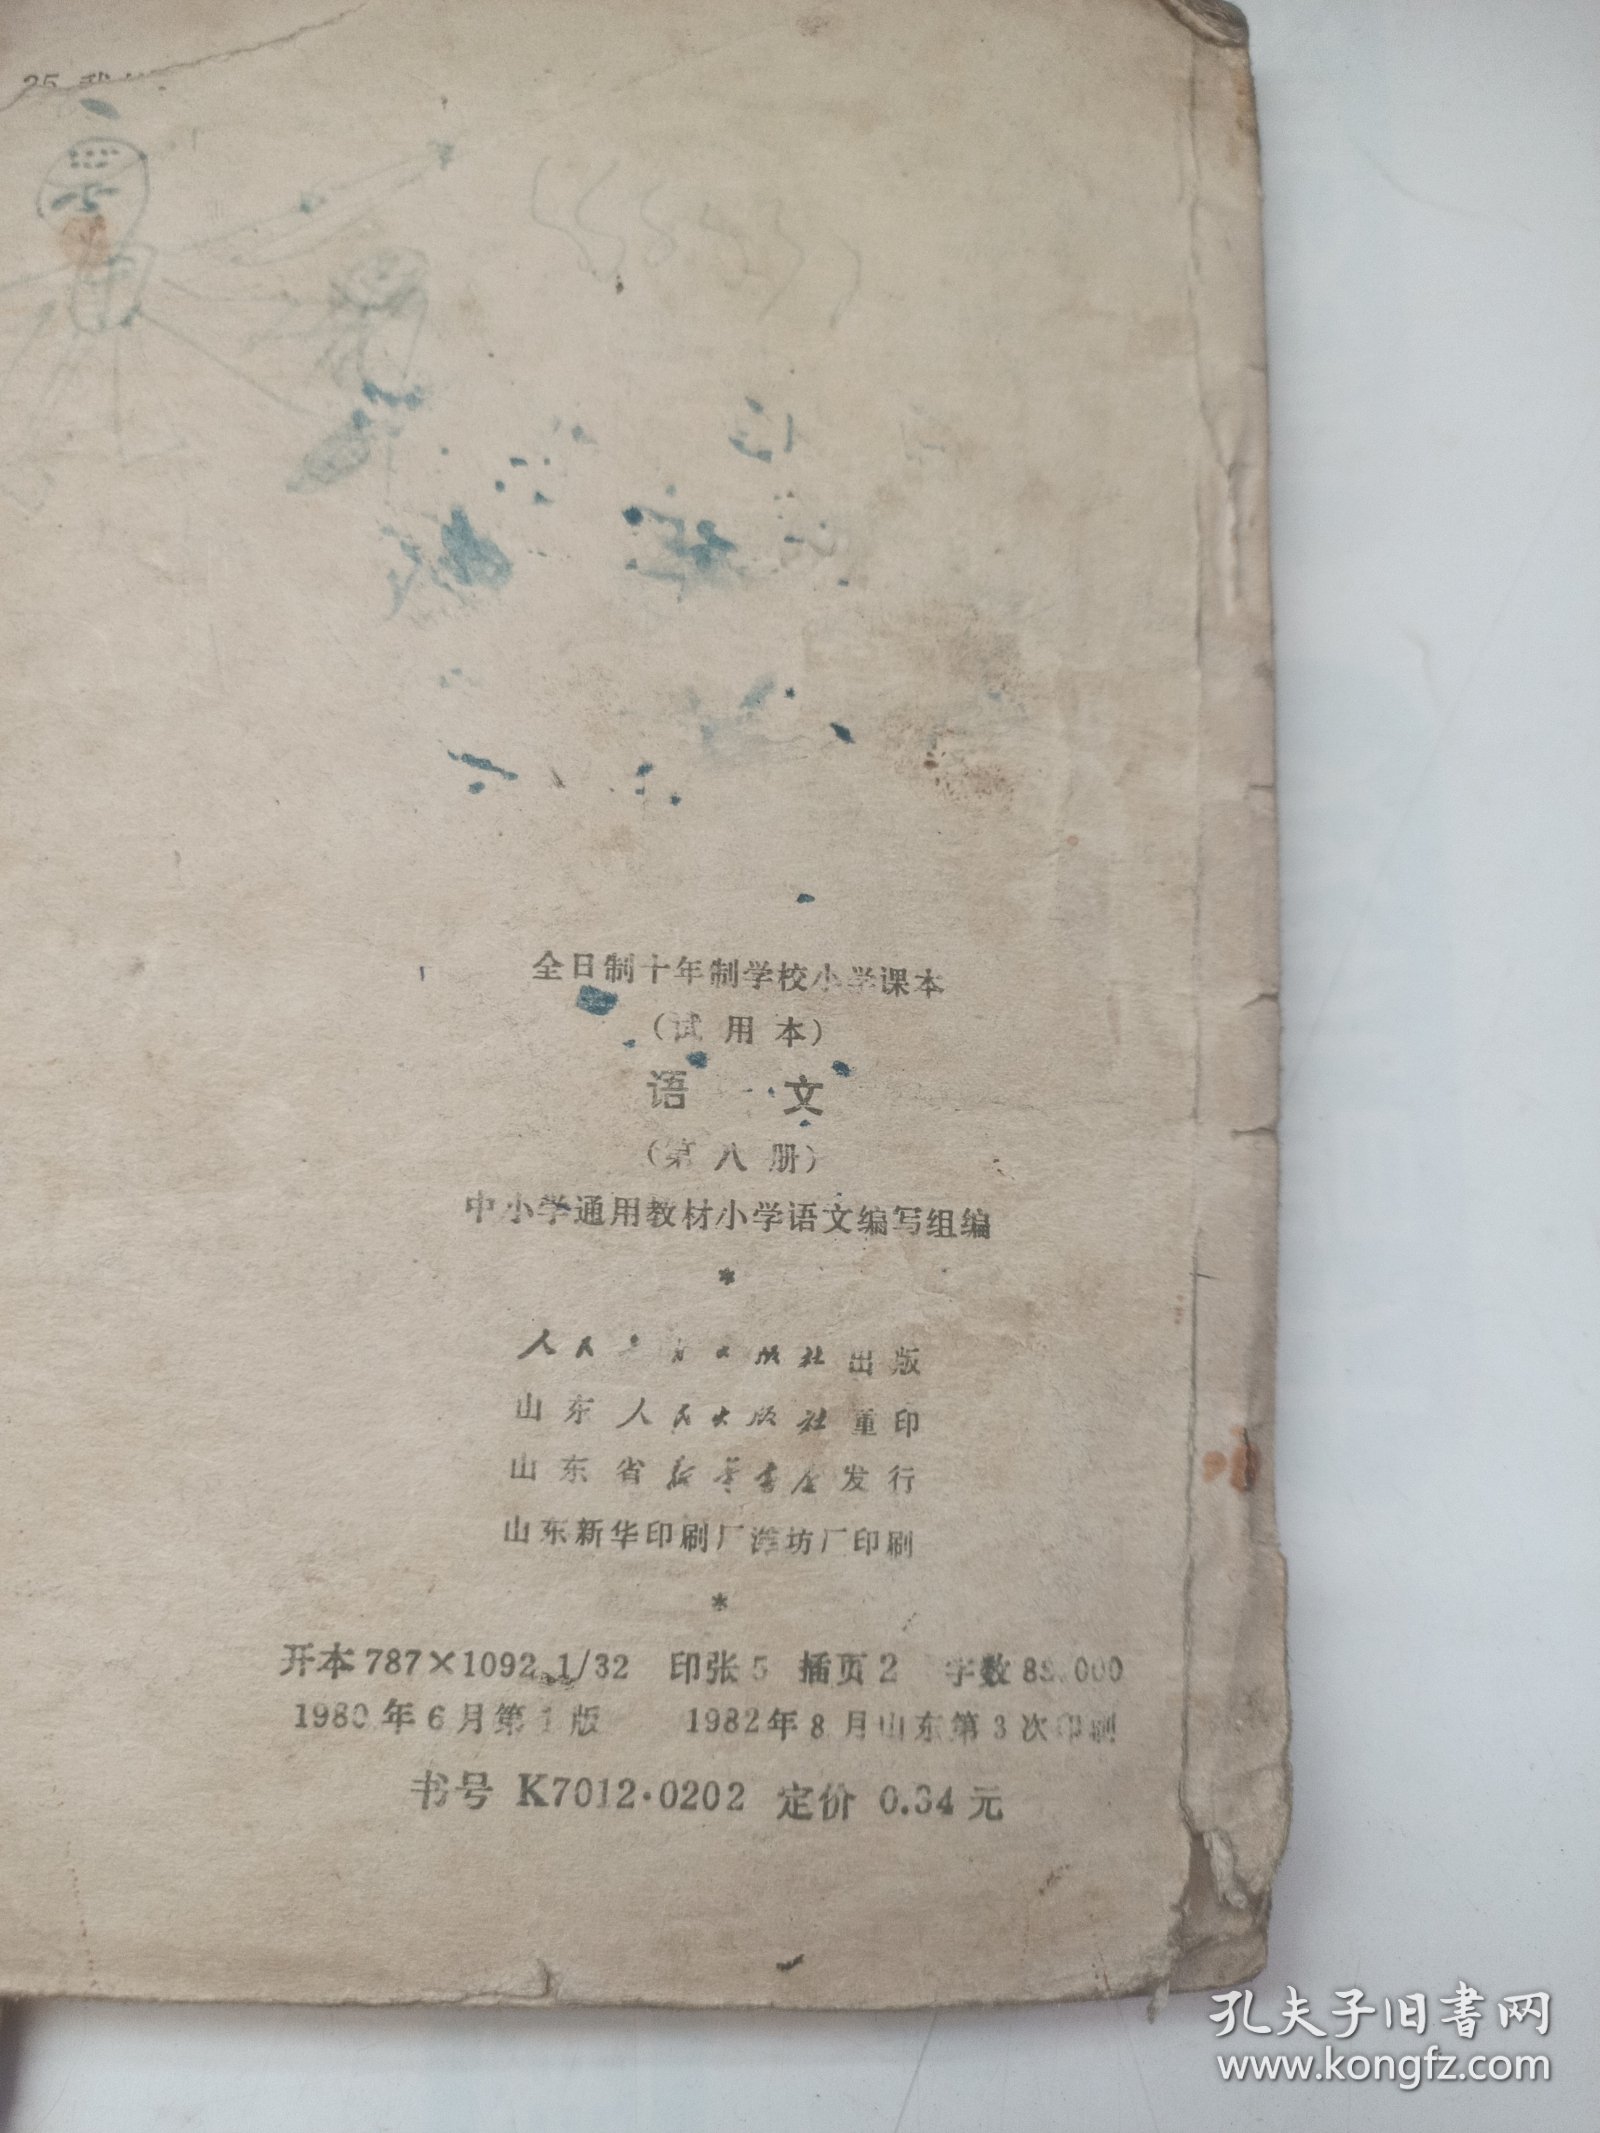 全日制十年制学校小学课本
（试用本）
语 文
（第八册）
中小学通用教材小学语文编写组编
*
人民教育出版社出版
山东人民出版社重印
山东省新华书店发行
山东新华印刷厂潍坊厂印刷
*
开本787×1092 1/32 印张5 插页2 字数
1980年6月第1版 1982年8月山东第3次印刷
书号 K7012·0202 定价 0.34元
孔夫子旧书网
www.kongfz.com